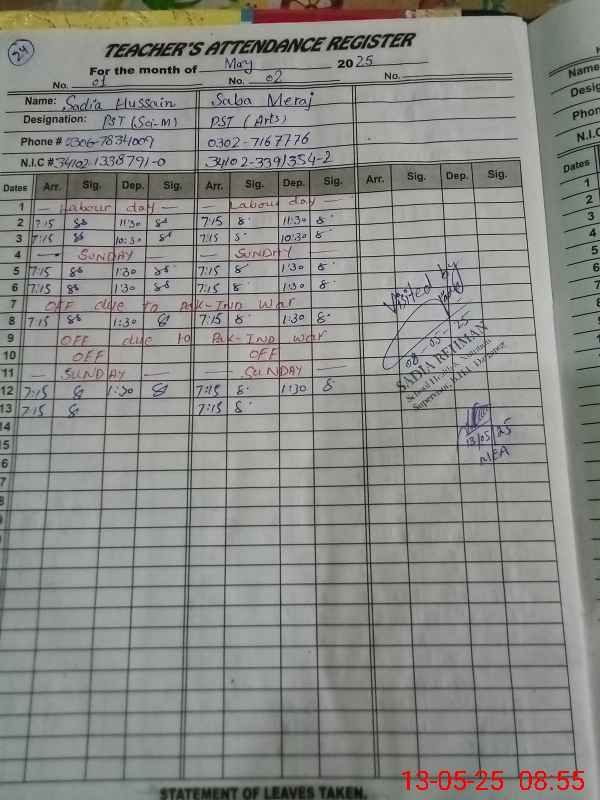 24
TEACHER'S ATTENDANCE REGISTER
For the month of May 2025
No. 01 No. 02 No.
Name: Sadia Hussain Saba Meraj
Designation: PST (Sci-M) PST (Arts)
Phone # 0306-7834009 0302-7167776
N.I.C # 34102-1338791-0 34102-3391354-2
Dates Arr. Sig. Dep. Sig. Arr. Sig. Dep. Sig. Arr. Sig. Dep. Sig.
1 — Labour day — — Labour day —
2 7:15 11:30 7:15 11:30
3 7:15 10:30 7:15 10:30
4 — SUNDAY — — SUNDAY —
5 7:15 1:30 7:15 1:30
6 7:15 1:30 7:15 1:30
7 OFF due to Pak-IND War
8 7:15 1:30 7:15 1:30
9 OFF due to Pak-IND war
10 OFF OFF
11 — SUNDAY — — SUNDAY —
12 7:15 1:30 7:15 1:30
13 7:15 7:15
14
15
Visited by
08-05-25
SADIA REHMAN
School Health & Nutrition
Supervisor
13/05/25
MEA
Name
Desig
Phon
N.I.C
Dates
1
2
3
4
5
6
7
8
9
10
11
12
13
STATEMENT OF LEAVES TAKEN.
13-05-25 08:55